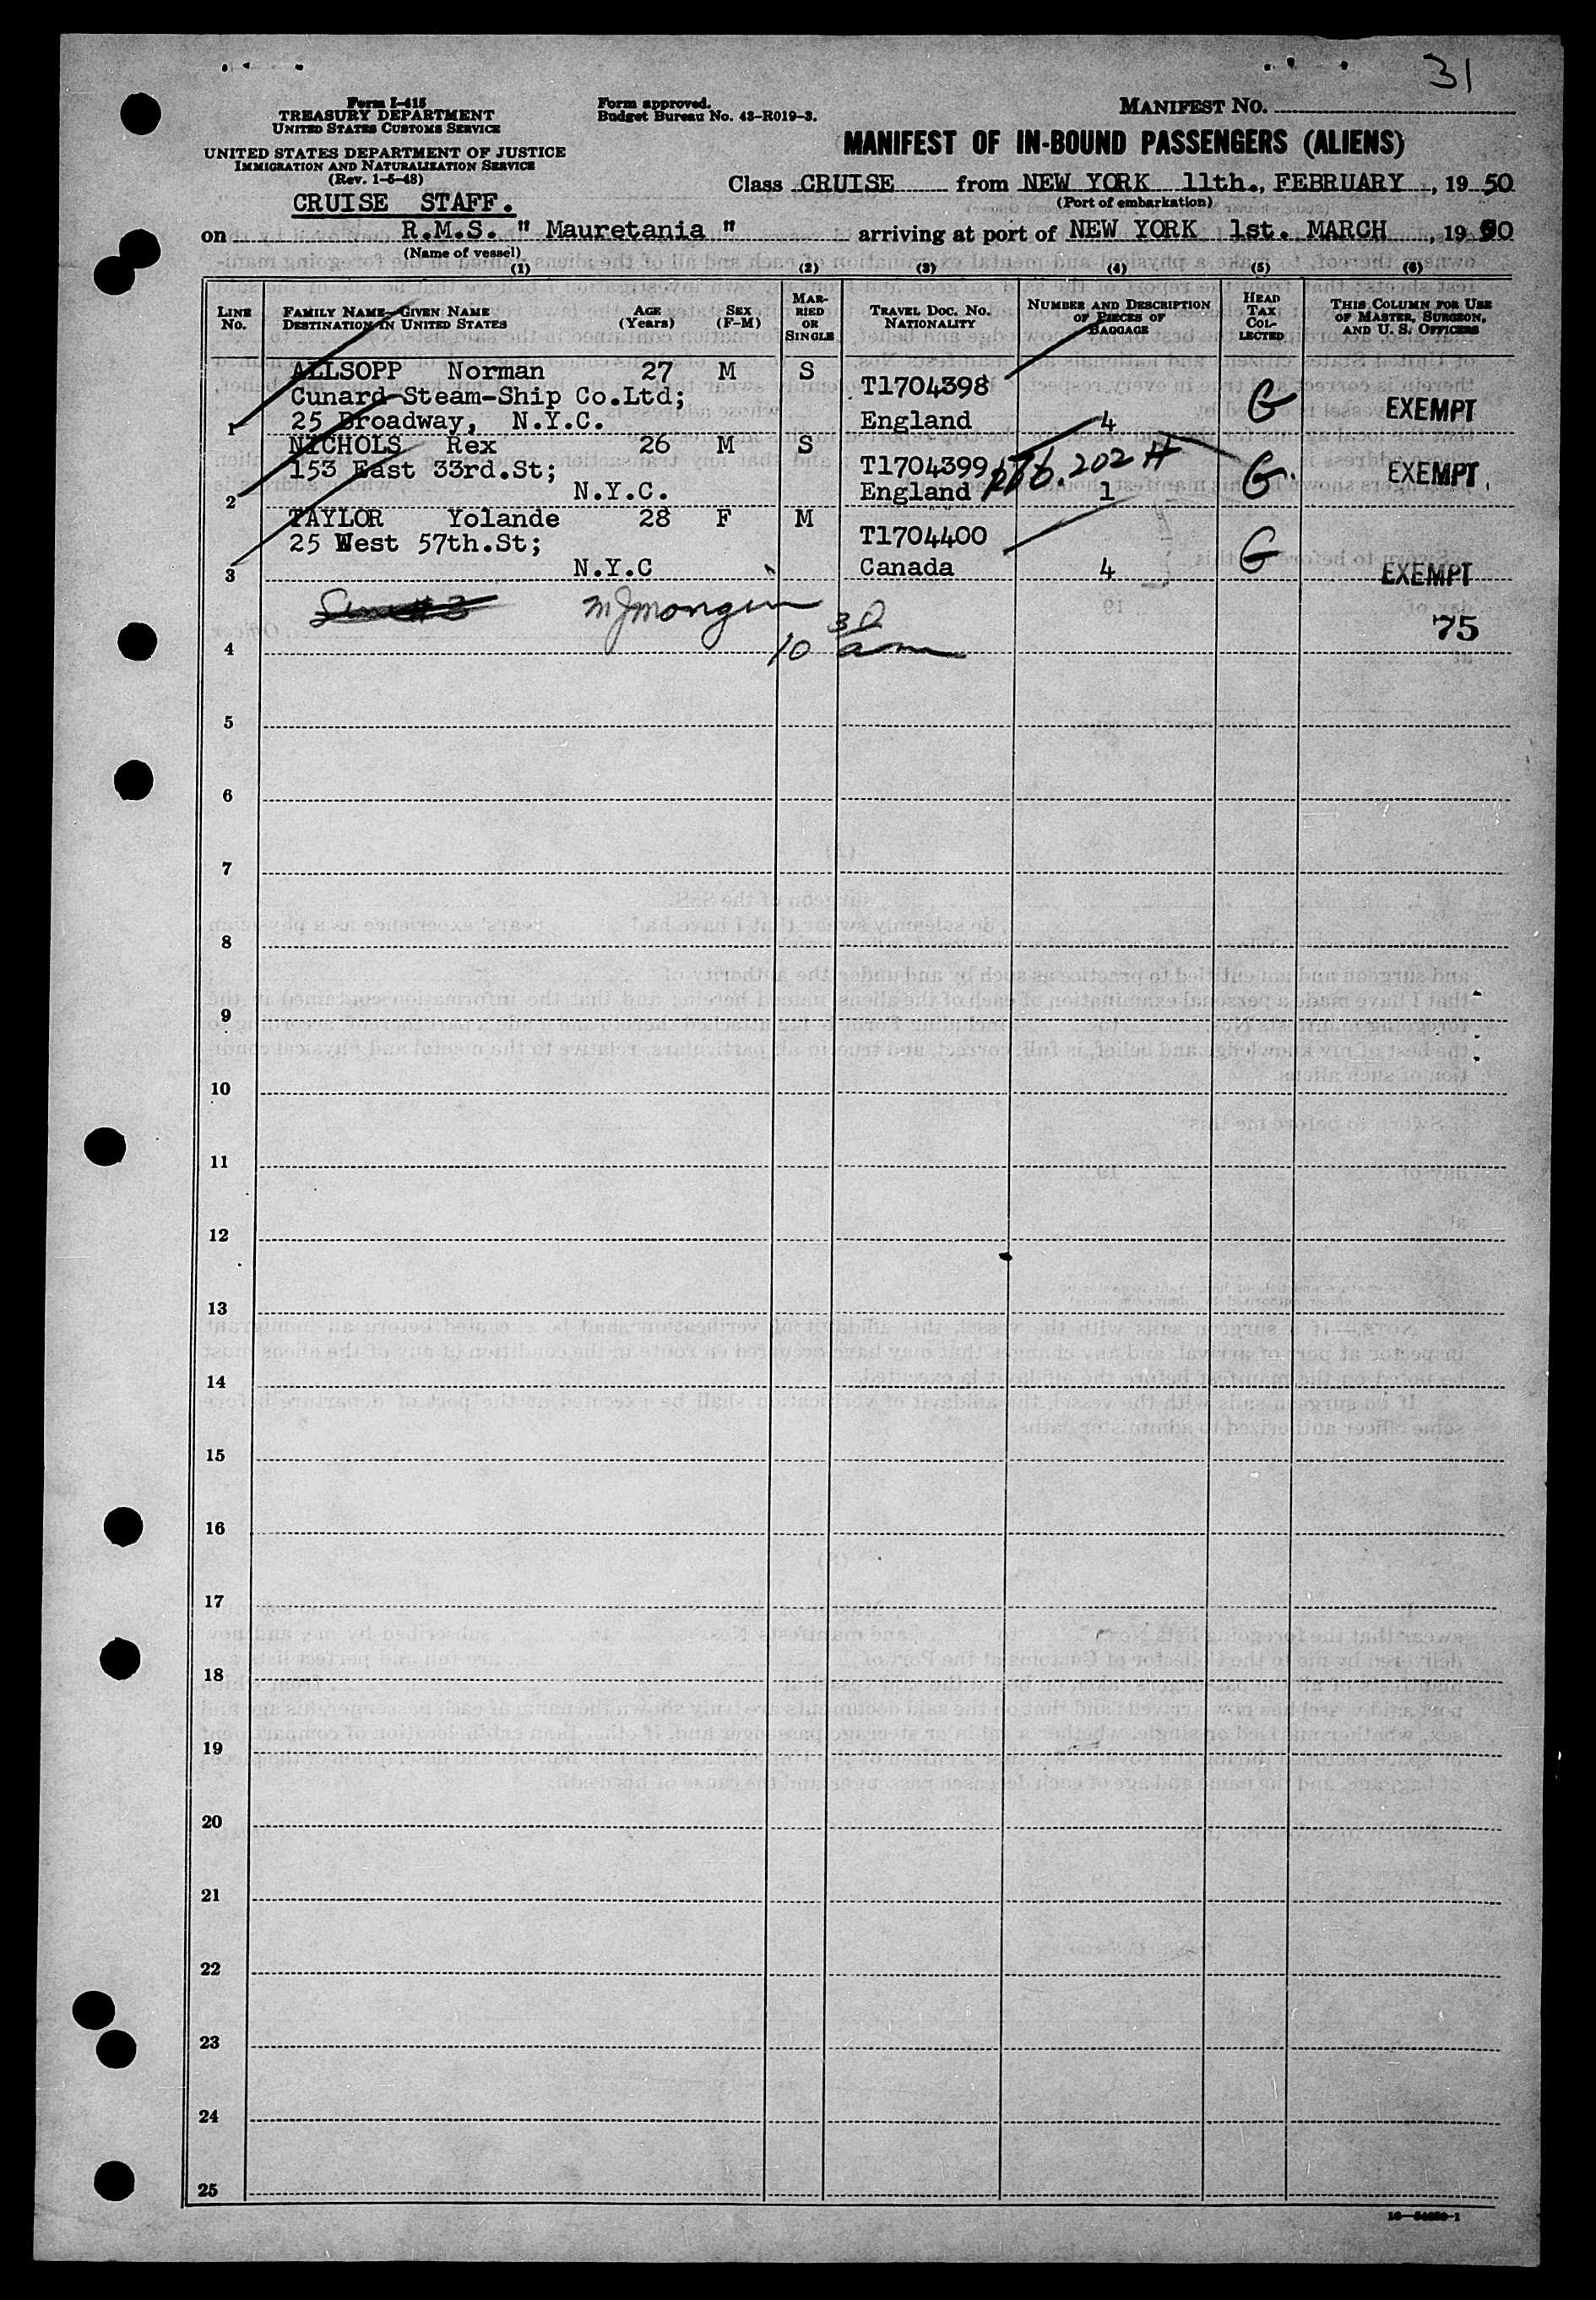 31
Form I-415
TREASURY DEPARTMENT
UNITED STATES CUSTOMS SERVICE
UNITED STATES DEPARTMENT OF JUSTICE
IMMIGRATION AND NATURALIZATION SERVICE
(Rev. 1-5-48)
Form approved.
Budget Bureau No. 43-R019-3.
MANIFEST NO.
MANIFEST OF IN-BOUND PASSENGERS (ALIENS)
Class CRUISE from NEW YORK 11th., FEBRUARY, 1950
(Port of embarkation)
CRUISE STAFF.
on R.M.S. " Mauretania " arriving at port of NEW YORK 1st. MARCH, 1950
(Name of vessel)
(1) (2) (3) (4) (5) (6)
LINE No.
FAMILY NAME—GIVEN NAME
DESTINATION IN UNITED STATES
AGE (Years)
SEX (F-M)
MARRIED OR SINGLE
TRAVEL DOC. NO. NATIONALITY
NUMBER AND DESCRIPTION OF PIECES OF BAGGAGE
HEAD TAX COLLECTED
THIS COLUMN FOR USE OF MASTER, SURGEON, AND U. S. OFFICERS
ALLSOPP Norman 27 M S
Cunard Steam-Ship Co.Ltd; T1704398 G EXEMPT
1 25 Broadway, N.Y.C. England 4
NICHOLS Rex 26 M S
153 East 33rd.St; T1704399 202 G EXEMPT
2 N.Y.C. England 1
TAYLOR Yolande 28 F M
25 West 57th.St; T1704400 G
3 N.Y.C Canada 4 EXEMPT
75
4 10 30 am
5
6
7
8
9
10
11
12
13
14
15
16
17
18
19
20
21
22
23
24
25